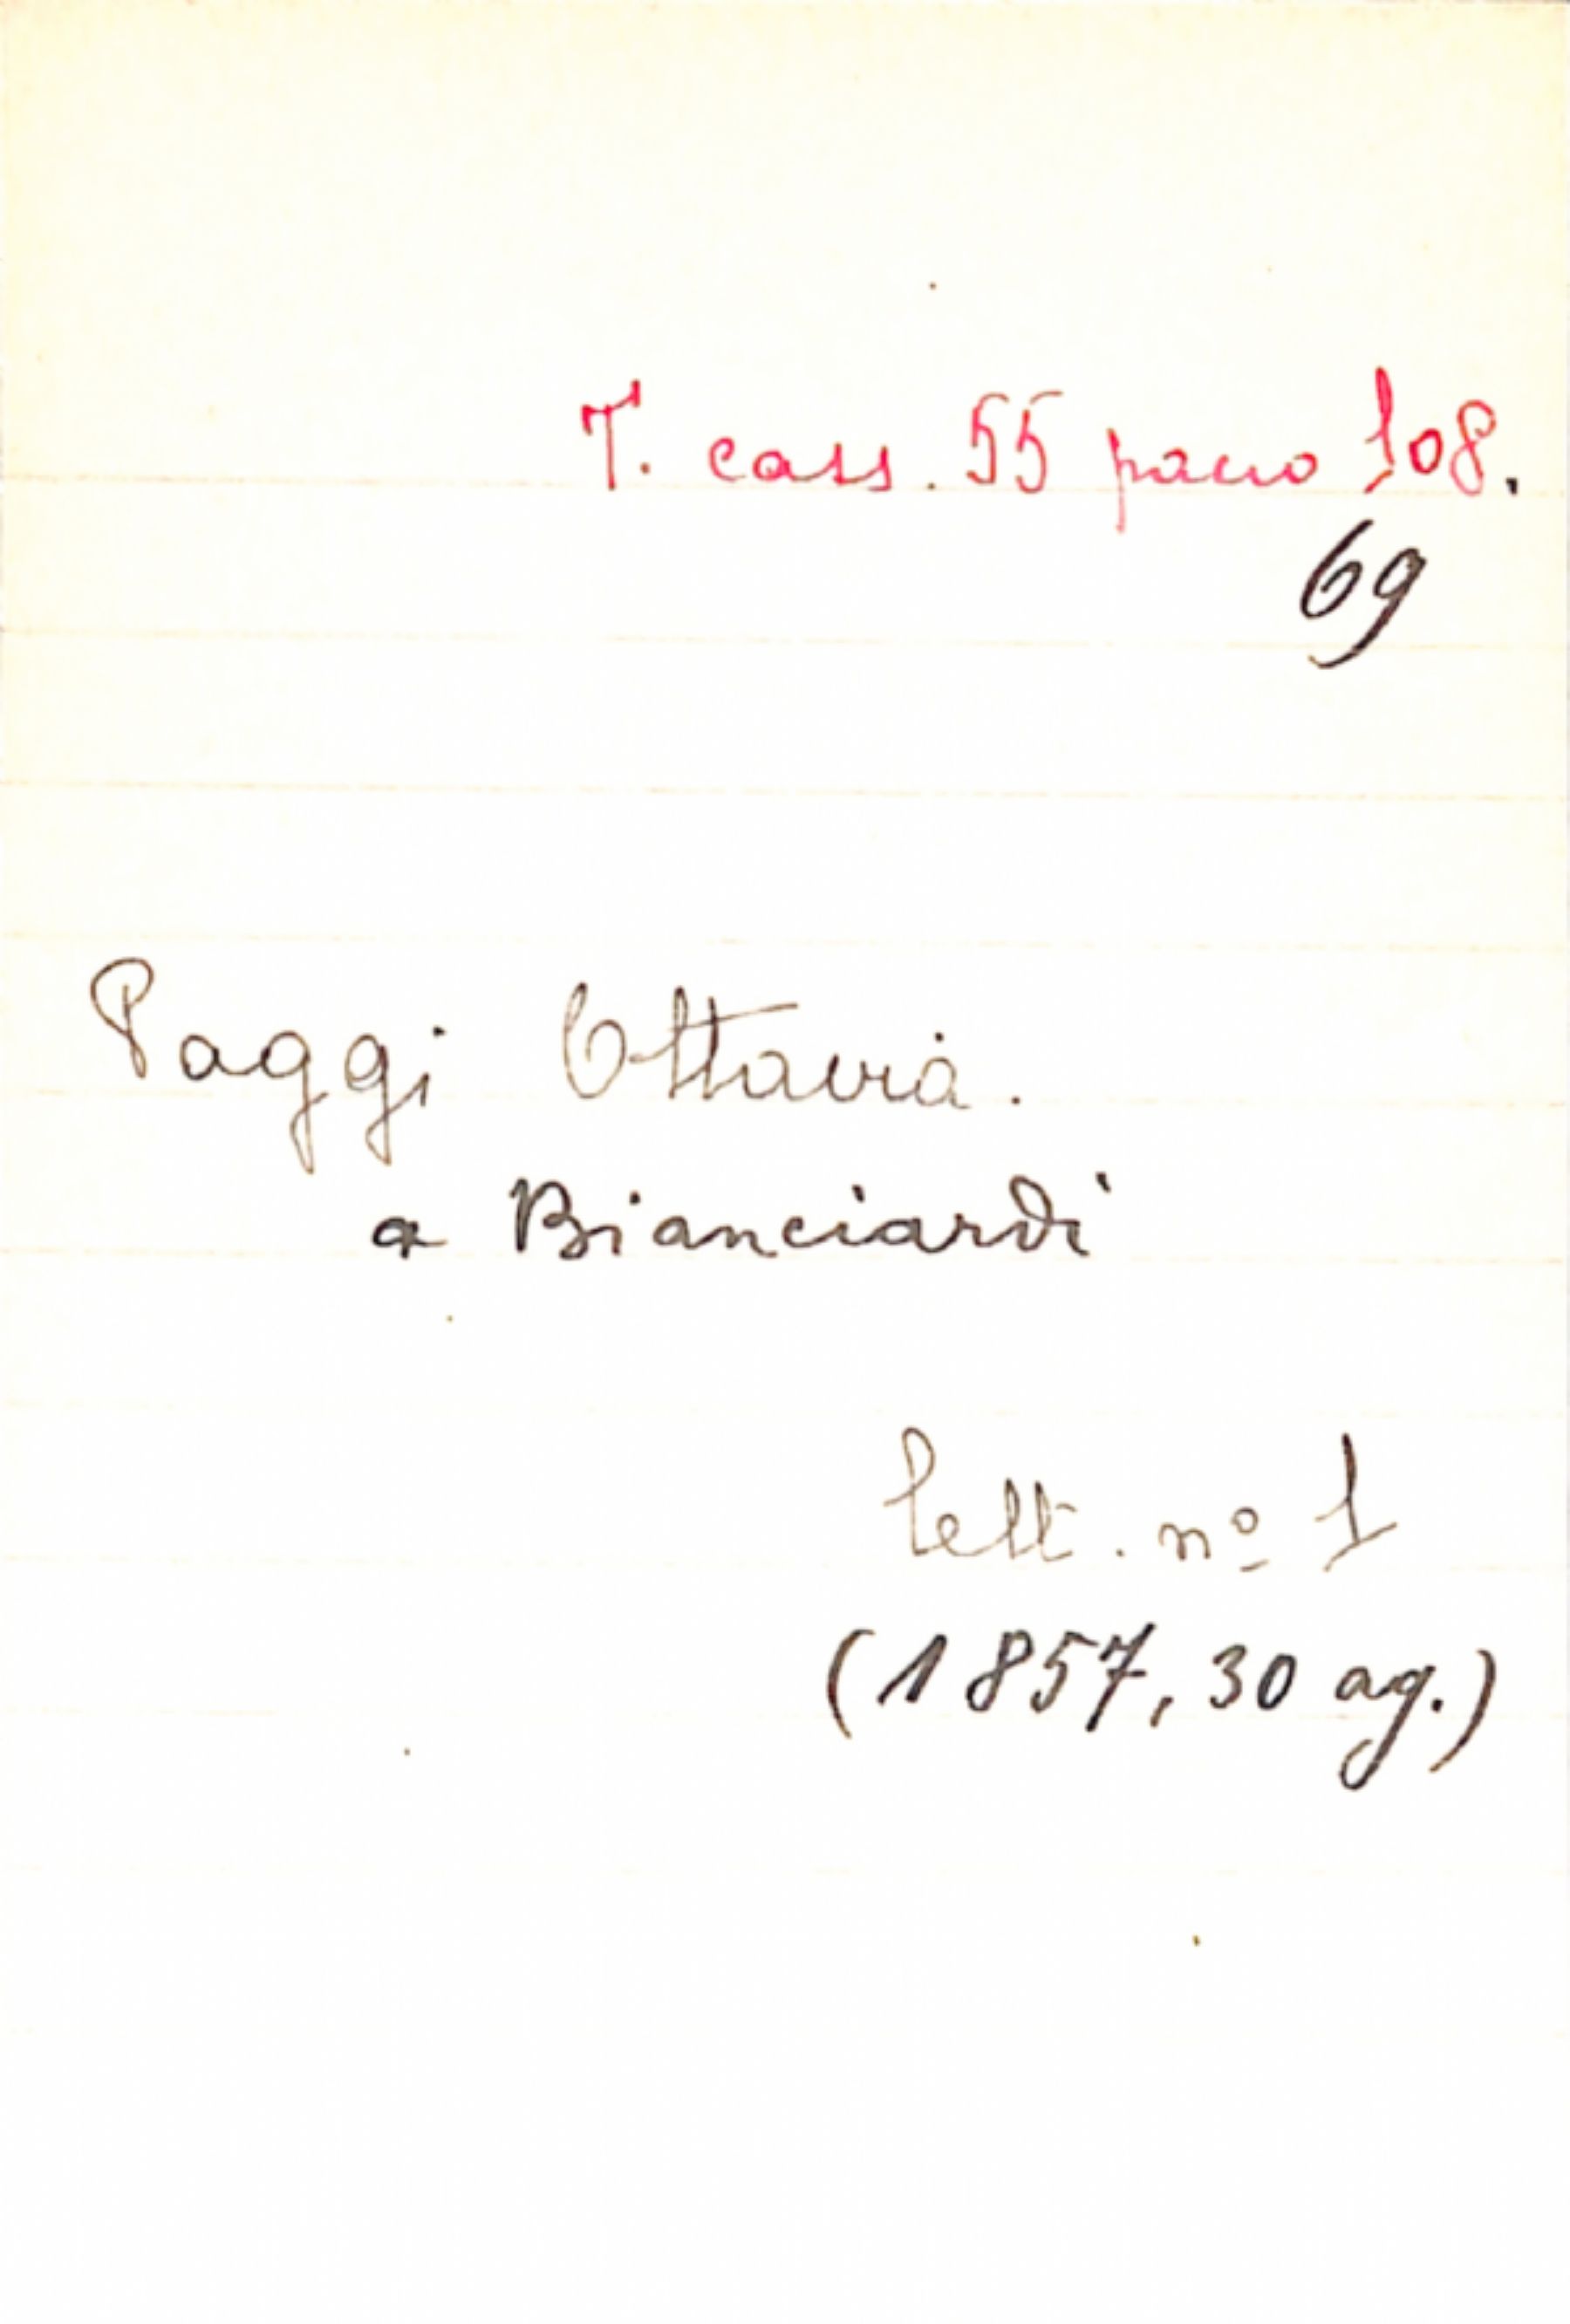 T. cass. 55 pacco 108.
69
Paggi Ottavia.
a Bianciardi
lett. nº 1
(1857, 30 ag.)